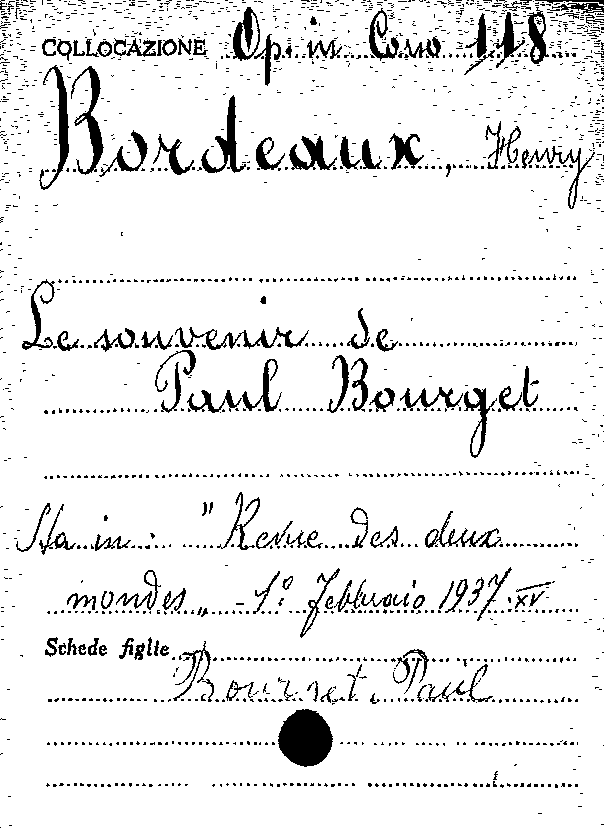 COLLOCAZIONE Op. in Corso 118
Bordeaux, Henry
Le souvenir de
Paul Bourget
Sta in: "Revue des deux
mondes„ - 1° febbraio 1937. XV
Schede figlie
Bourget, Paul